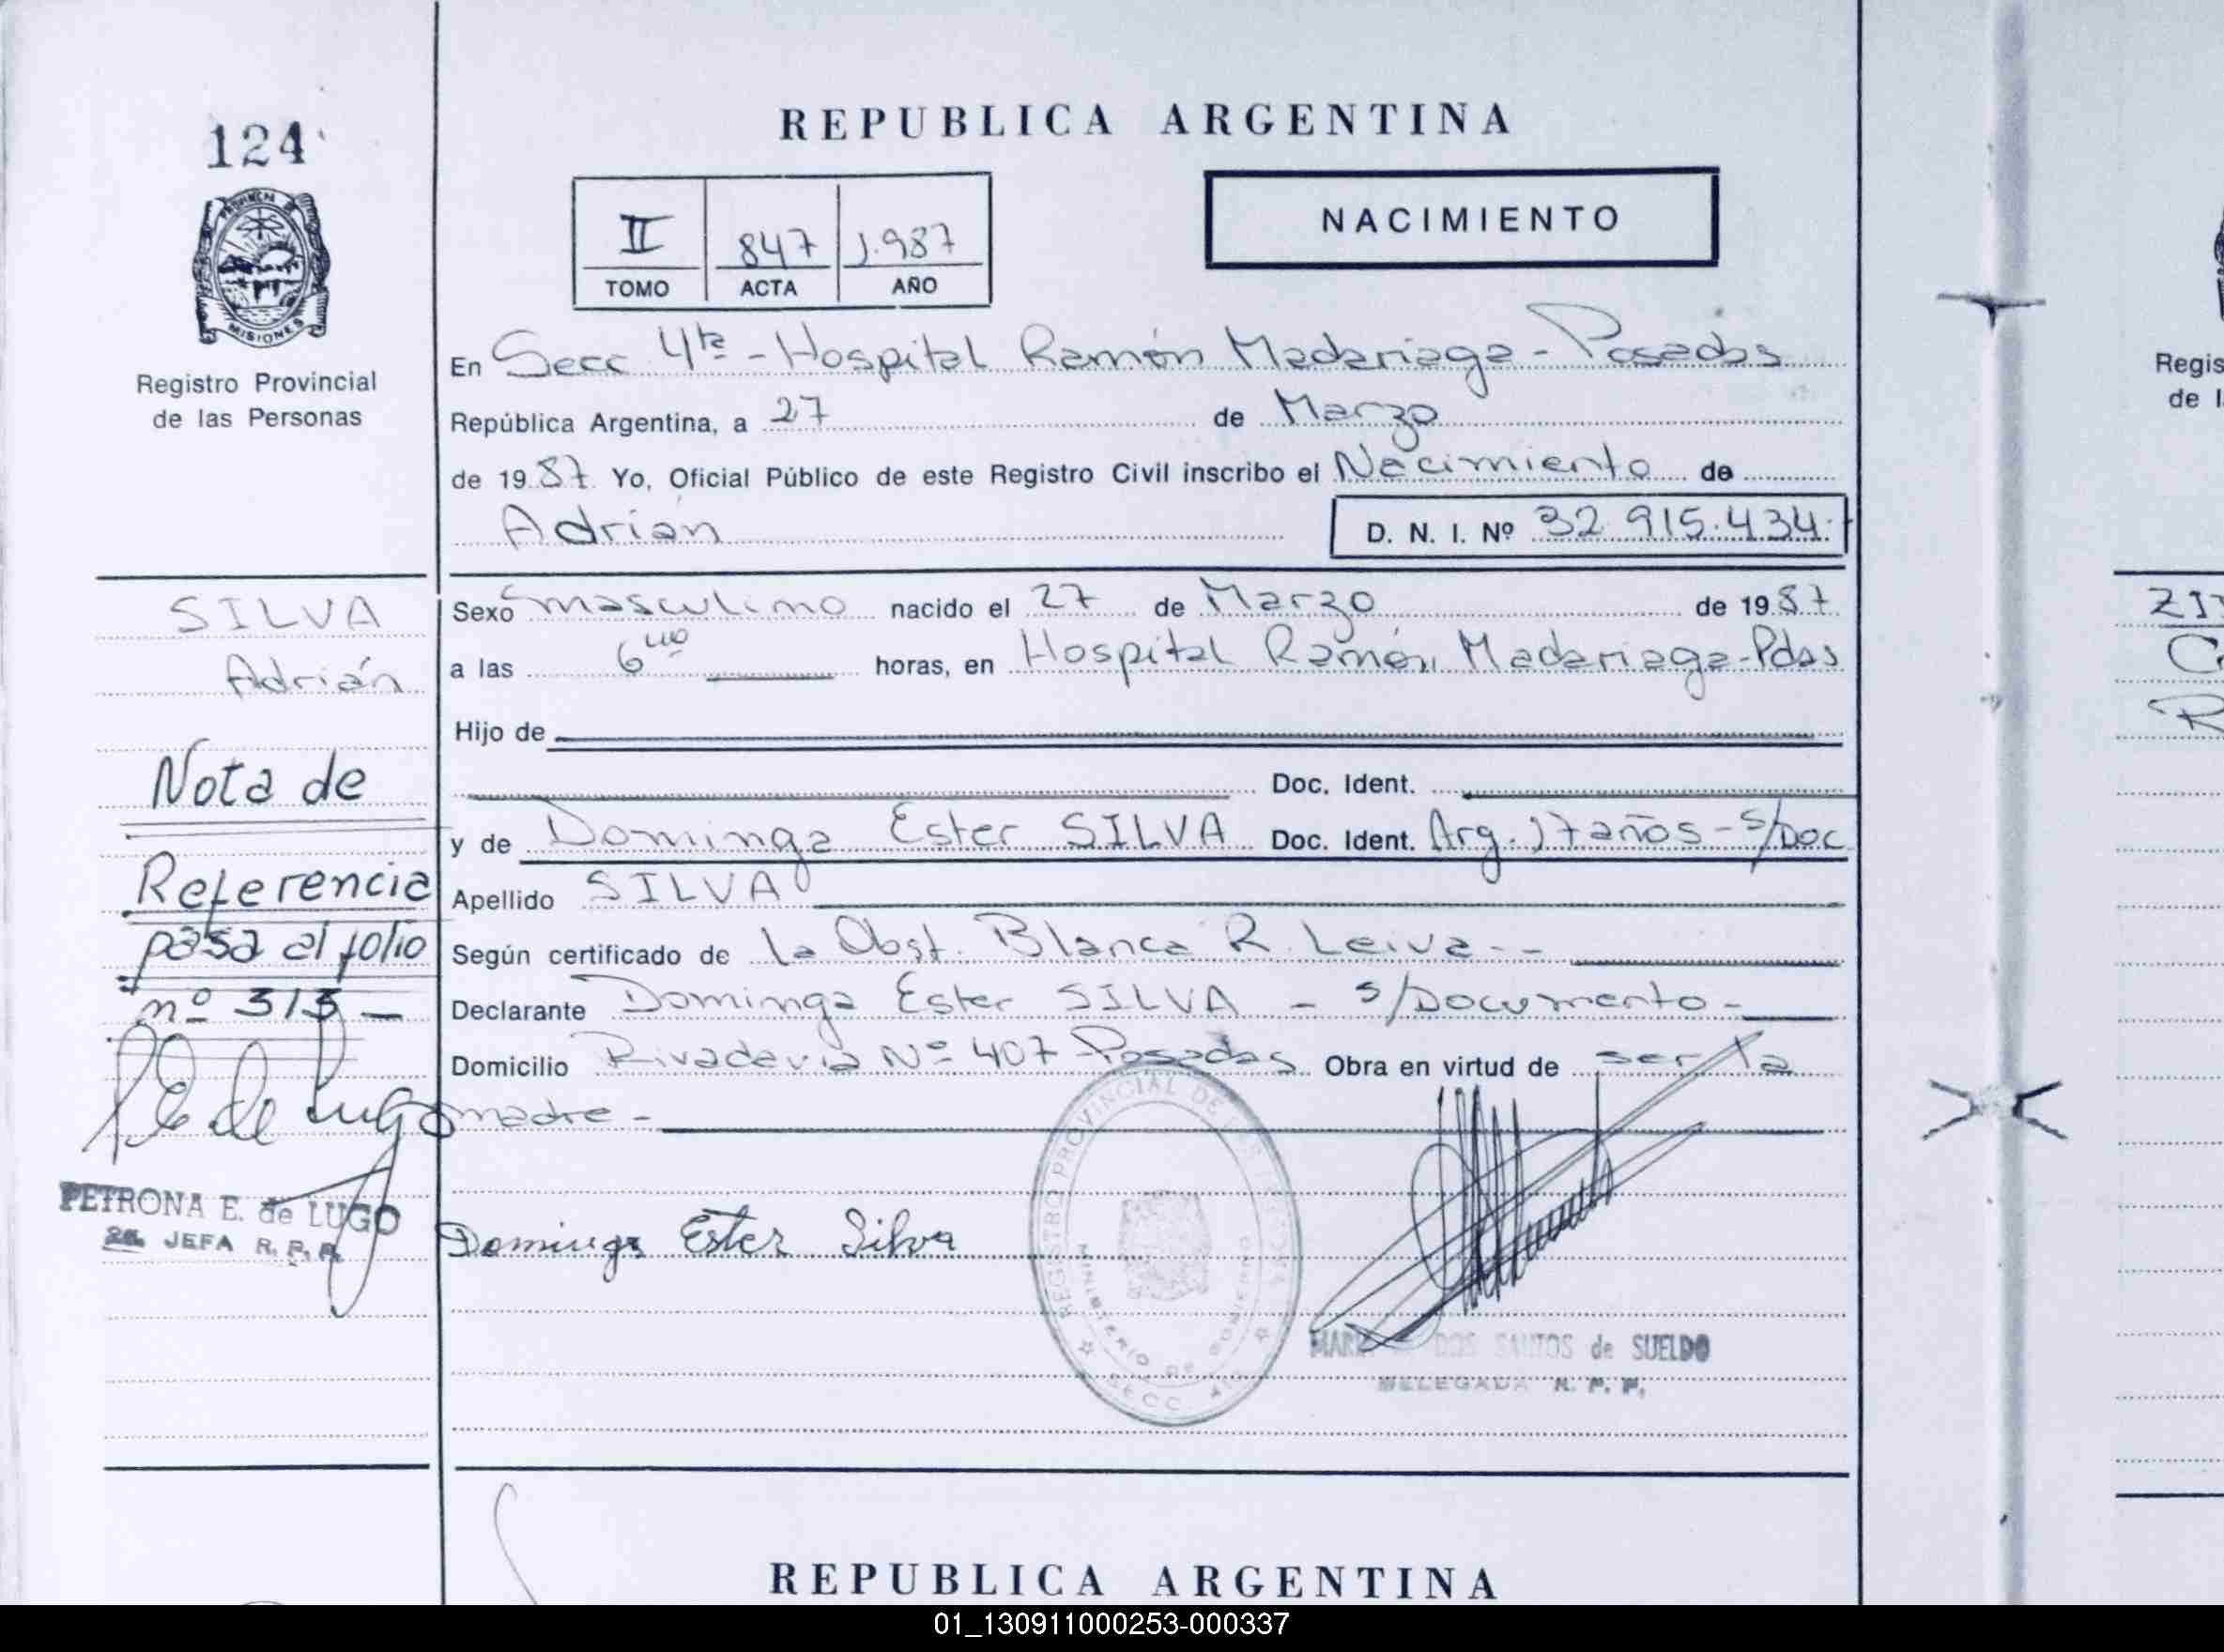 124
PROVINCIA DE
MISIONES
Registro Provincial
de las Personas
REPUBLICA ARGENTINA
II 847 1.987
TOMO ACTA AÑO
NACIMIENTO
En Secc 4ta - Hospital Ramón Madariaga - Posadas
República Argentina, a 27 de Marzo
de 1987 Yo, Oficial Público de este Registro Civil inscribo el Nacimiento de
Adrian
D. N. I. Nº 32.915.434.-
SILVA
Adrián
Nota de
Referencia
pasa al folio
nº 313 —
PETRONA E. de LUGO
JEFA R. P. P.
Sexo masculino nacido el 27 de Marzo de 1987
a las 6 horas, en Hospital Ramón Madariaga - Pdas
Hijo de
Doc. Ident.
y de Dominga Ester SILVA Doc. Ident. Arg. 17 años - s/Doc
Apellido SILVA
Según certificado de la Obst. Blanca R. Leiva - -
Declarante Dominga Ester SILVA - s/Documento -
Domicilio Rivadavia Nº 407 - Posadas Obra en virtud de ser la
madre -
Dominga Ester Silva
REGISTRO PROVINCIAL DE
MINISTERIO DE GOBIERNO
SECC 4ta
DOS SANTOS de SUELDO
DELEGADA R. P. P.
REPUBLICA ARGENTINA
Regis
de l
01_130911000253-000337